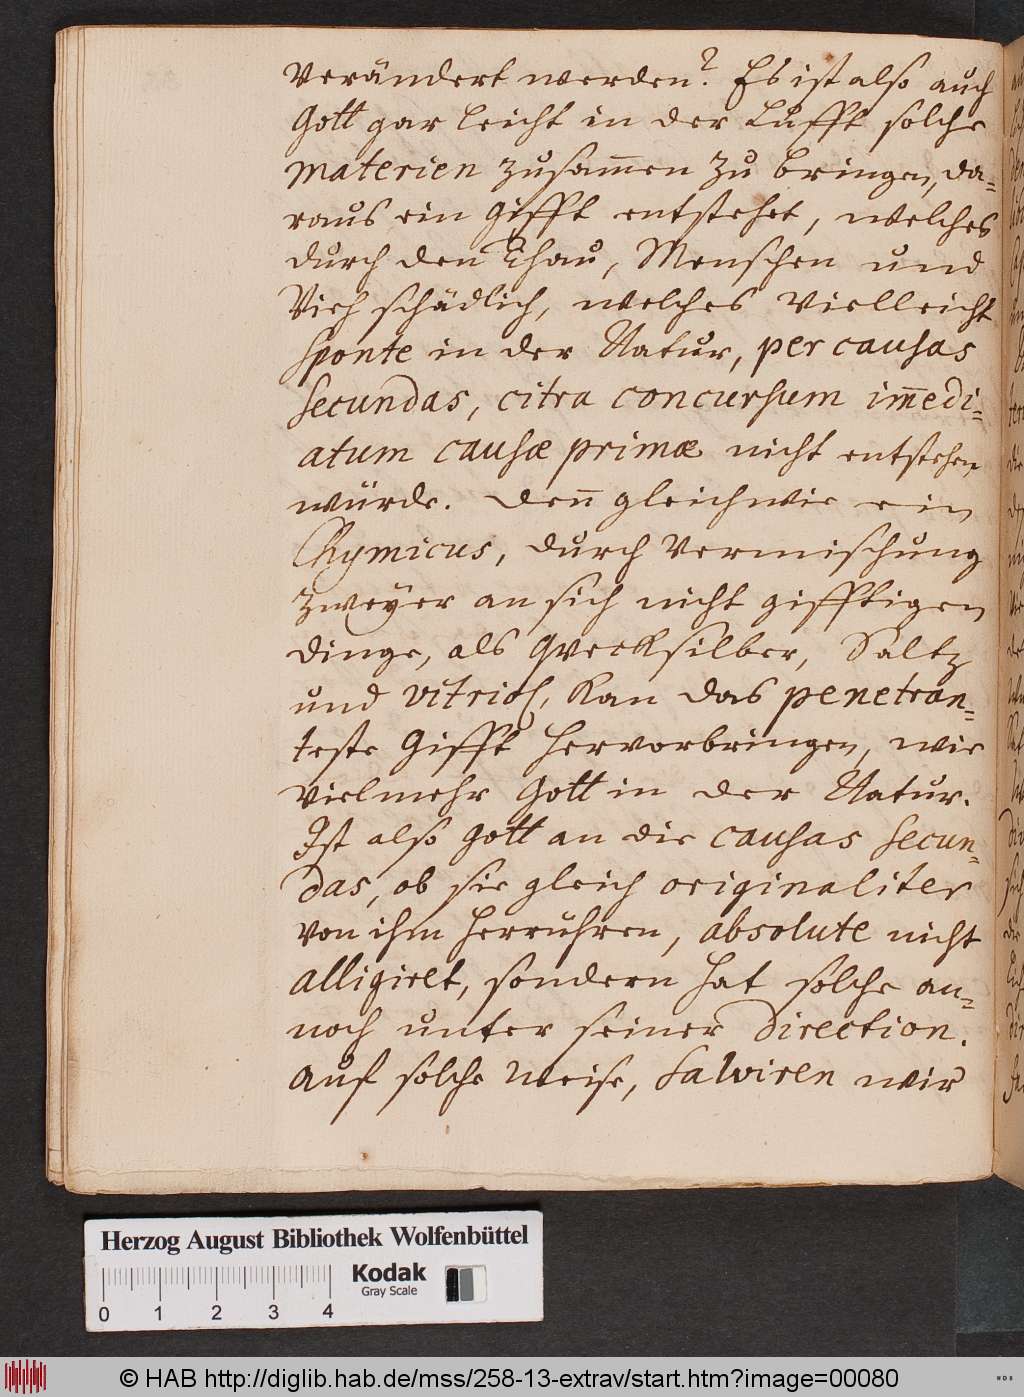 verändert werden? Es ist also auch
Gott gar leicht in der Lufft solche
materien zusam̅en zu bringen, da=
raus ein Gifft entstehet, welches
durch den Thau, Menschen und
Vieh schädlich, welches vielleicht
sponte in der Natur, per causas
secundas, citra concursum im̅edi=
atum causæ primæ nicht entstehen
würde. Den̅ gleichwie ein
Chymicus, durch Vermischung
zweÿer an sich nicht gifftigen
dinge, als Qvecksilber, Saltz
und vitriol, kan das penetran=
teste Gifft hervorbringen, wie
vielmehr Gott in der Natur.
Ist also Gott an die causas secun=
das, ob sie gleich originaliter
von ihm herrühren, absolute nicht
alligiret, sondern hat solche an=
noch unter seiner direction.
Auf solche Weise, salviren wir
Herzog August Bibliothek Wolfenbüttel
Kodak
Gray Scale
0 1 2 3 4
© HAB http://diglib.hab.de/mss/258-13-extrav/start.htm?image=00080